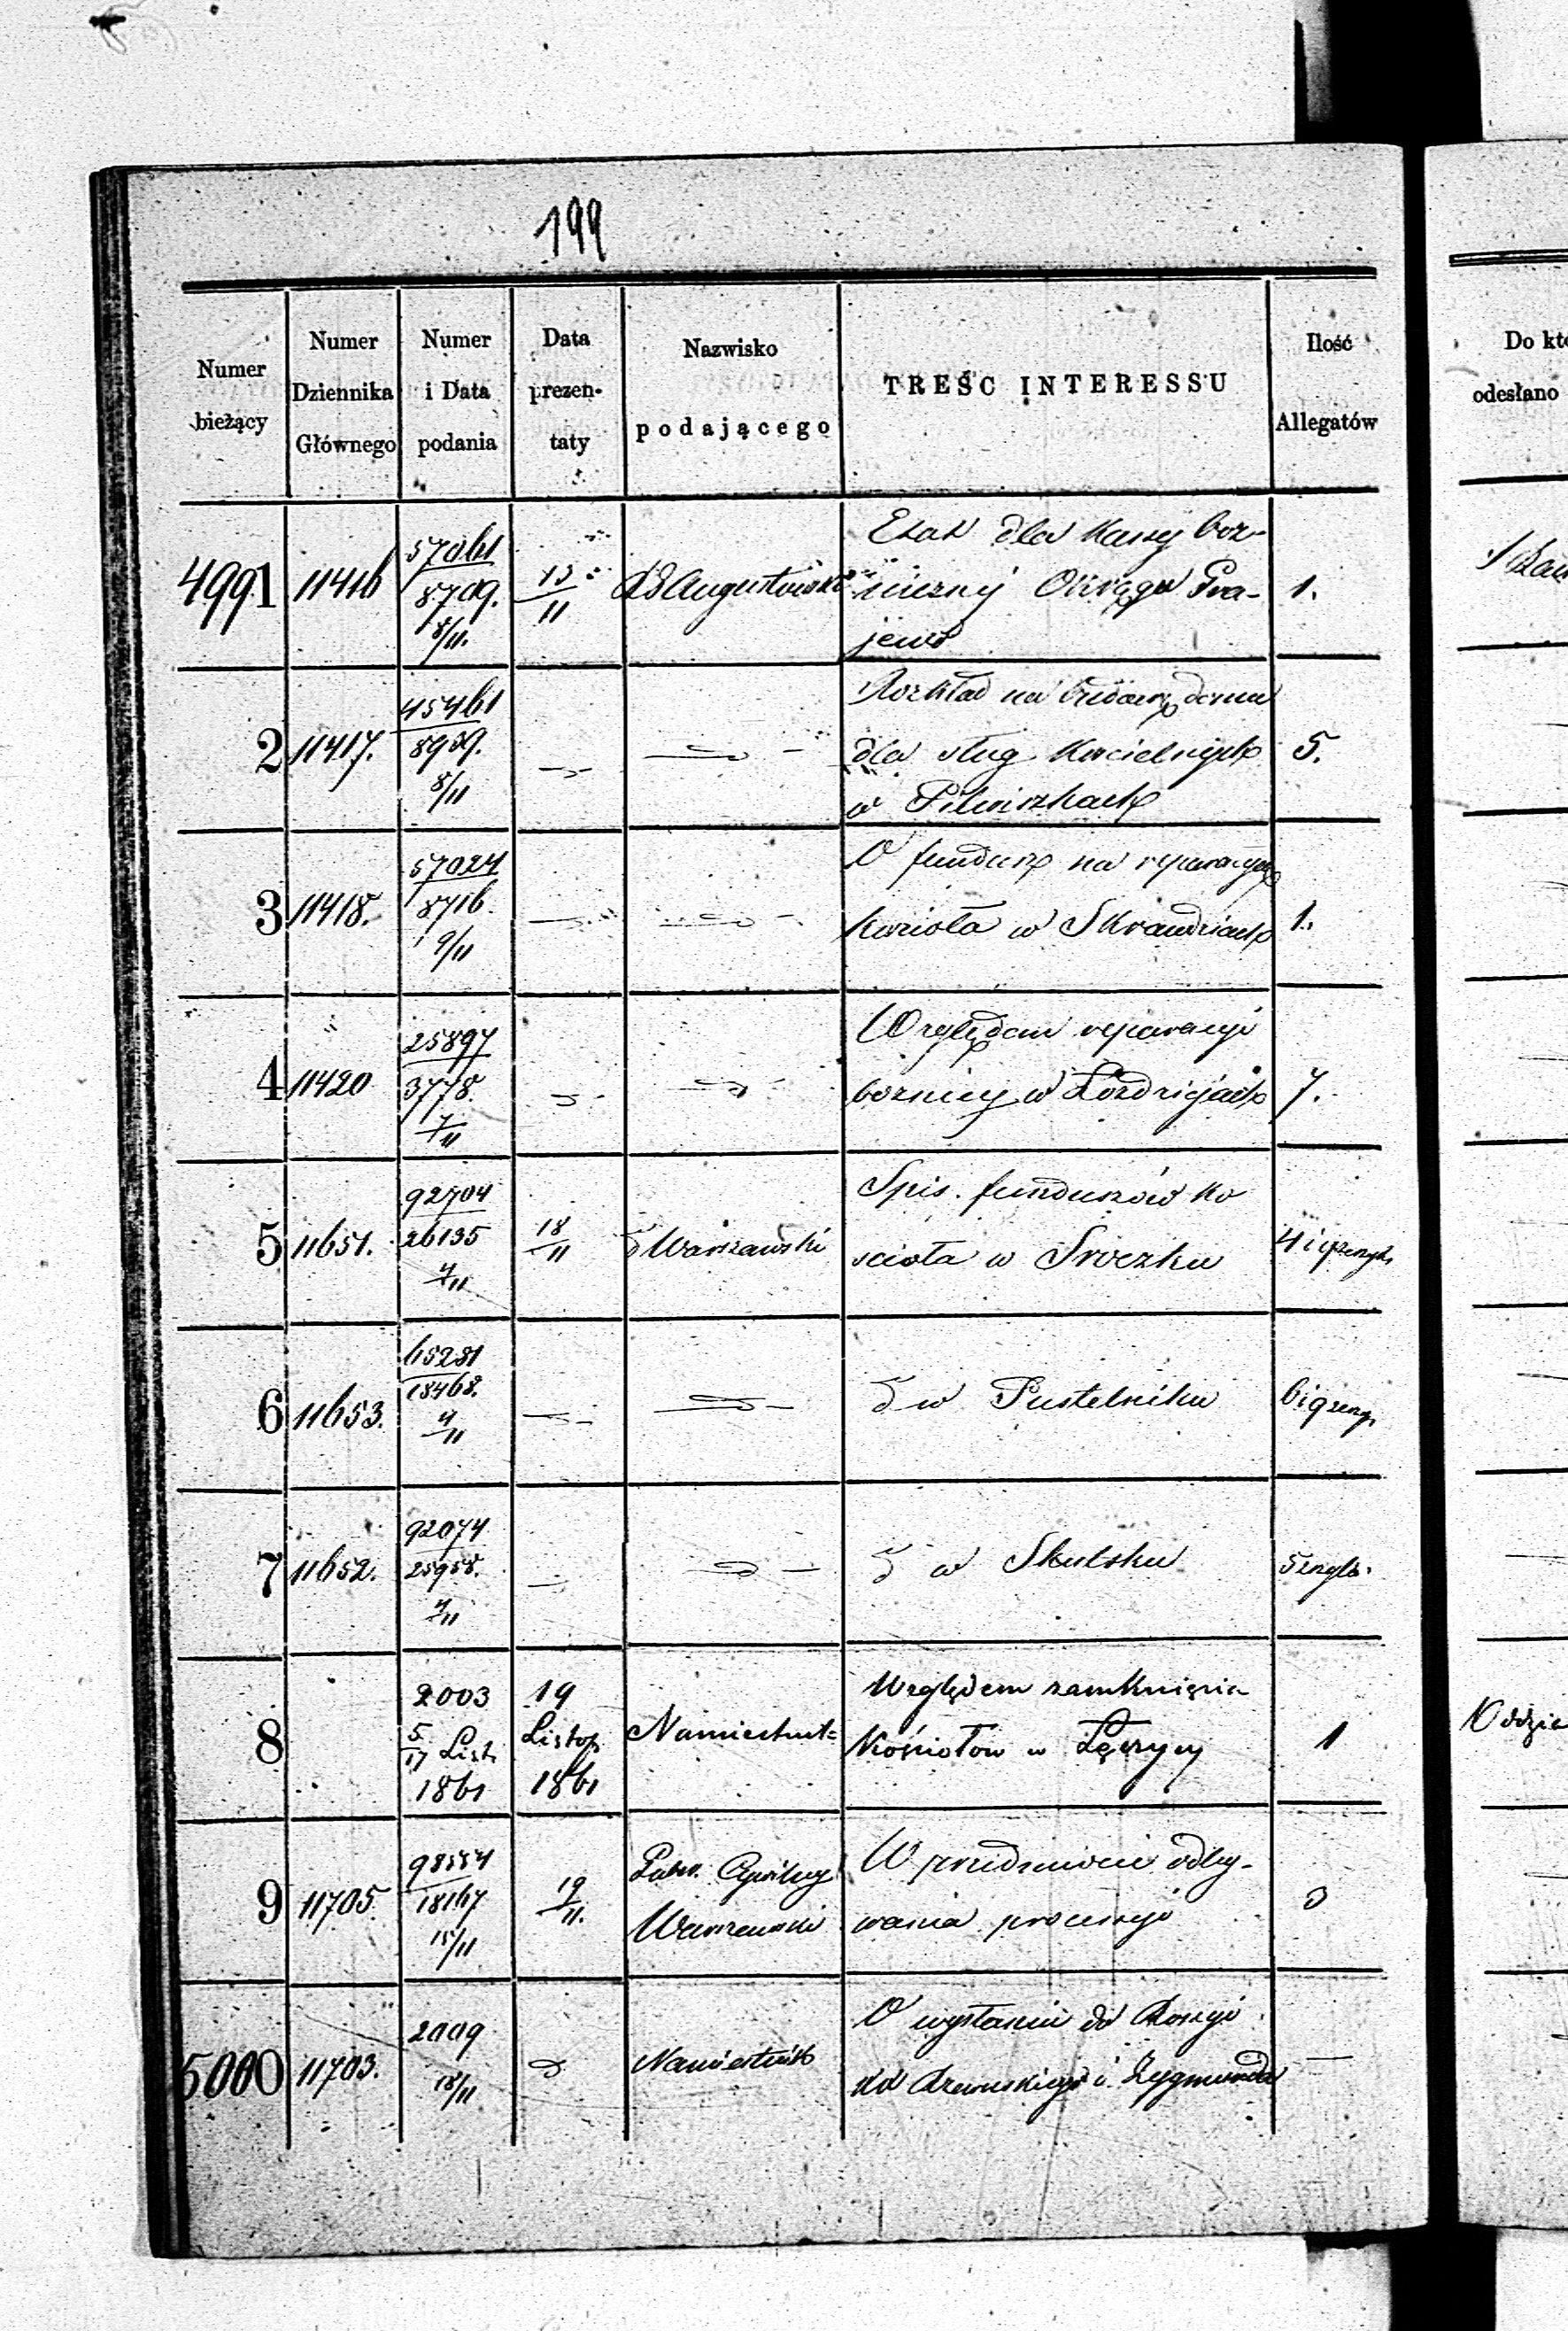 199
Numer bieżący | Numer Dziennika Głównego | Numer i Data podania | Data prezentaty | Nazwisko podającego | TREŚĆ INTERESSU | Ilość Allegatów | Do kt
odesłano
4991 | 11416 | 57061 / 8709. 8/11. | 13/11 | Augustowski | Etat dla Kassy boż-
niczny Okręgu Gra-
jewo | 1.
2 | 11417. | 45461 / 8939. 8/11 | Rozkład na budowę domu
dla sług Kościelnych
w Pilwiszkach | 5.
3 | 11418. | 57024 / 8716. 9/11 | O fundusz na reparacyę
Kościoła w Skraudziach | 1.
4 | 11420 | 25897 / 3778. 7/11 | Względem reparacyi
boznicy w Łozdziejach | 7.
5 | 11651. | 92704 / 26135 4/11 | 18/11 | Warszawski | Spis funduszów Ko
scioła w Sroczku | 4 i
6 | 11653. | 65281 / 18468. 4/11 | w Pustelniku | 6 i
7 | 11652. | 92074 / 25958. 4/11 | w Skulsku | 5
8 | 2003 5/17 List. 1861 | 19 Listop 1861 | Namiestnik | Względem zamknięcia
Kościołów w Łęczycy | 1
9 | 11705. | 18167 15/11 | 19/11. | Cywilny
Warszawski | W przedmiocie odby-
wania processyi
5000 | 11703. | 2009 18/11 | Namiestnik | O wysłaniu do Rossyi
xx Rzewuskiego i Zygmunda | —